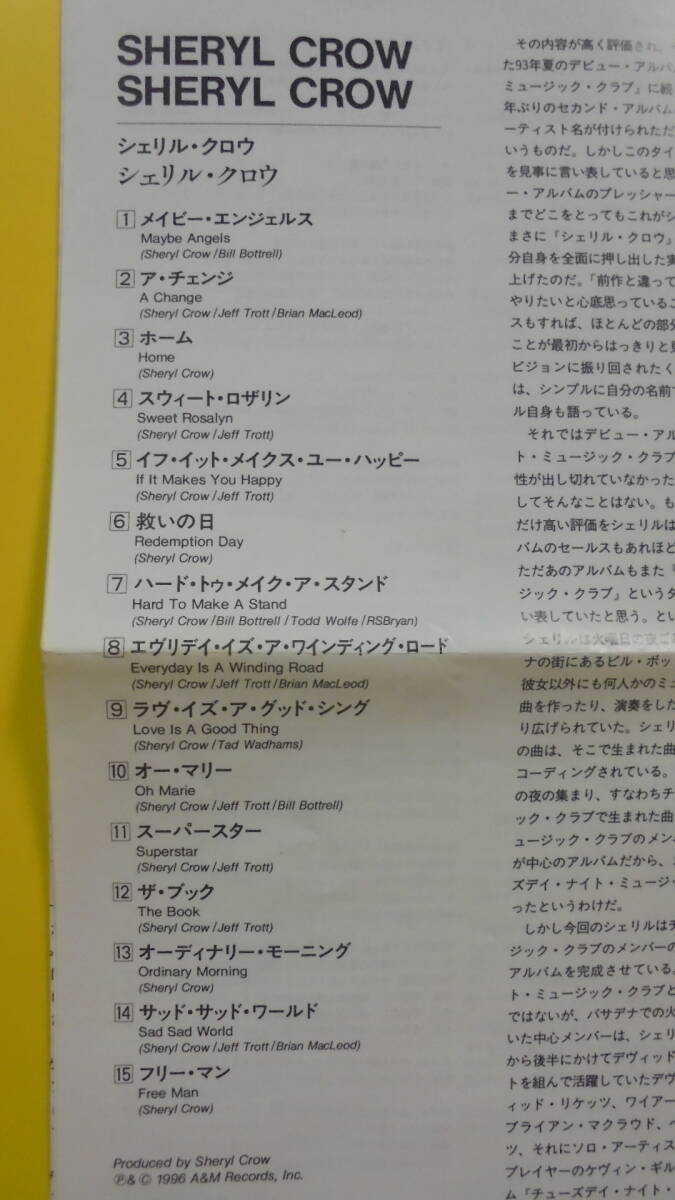 SHERYL CROW
SHERYL CROW
シェリル・クロウ
シェリル・クロウ
1 メイビー・エンジェルス
Maybe Angels
(Sheryl Crow/Bill Bottrell)
2 ア・チェンジ
A Change
(Sheryl Crow/Jeff Trott/Brian MacLeod)
3 ホーム
Home
(Sheryl Crow)
4 スウィート・ロザリン
Sweet Rosalyn
(Sheryl Crow/Jeff Trott)
5 イフ・イット・メイクス・ユー・ハッピー
If It Makes You Happy
(Sheryl Crow/Jeff Trott)
6 救いの日
Redemption Day
(Sheryl Crow)
7 ハード・トゥ・メイク・ア・スタンド
Hard To Make A Stand
(Sheryl Crow/Bill Bottrell/Todd Wolfe/RSBryan)
8 エヴリデイ・イズ・ア・ワインディング・ロード
Everyday Is A Winding Road
(Sheryl Crow/Jeff Trott/Brian MacLeod)
9 ラヴ・イズ・ア・グッド・シング
Love Is A Good Thing
(Sheryl Crow/Tad Wadhams)
10 オー・マリー
Oh Marie
(Sheryl Crow/Jeff Trott/Bill Bottrell)
11 スーパースター
Superstar
(Sheryl Crow/Jeff Trott)
12 ザ・ブック
The Book
(Sheryl Crow/Jeff Trott)
13 オーディナリー・モーニング
Ordinary Morning
(Sheryl Crow)
14 サッド・サッド・ワールド
Sad Sad World
(Sheryl Crow/Jeff Trott/Brian MacLeod)
15 フリー・マン
Free Man
(Sheryl Crow)
Produced by Sheryl Crow
℗&© 1996 A&M Records, Inc.
その内容が高く評価され、
た93年夏のデビュー・アルバ
ミュージック・クラブ』に続
年ぶりのセカンド・アルバム
ーティスト名が付けられただ
いうものだ。しかしこのタイ
を見事に言い表していると思
ー・アルバムのプレッシャー
までどこをとってもこれがシ
まさに『シェリル・クロウ』
分自身を全面に押し出した実
上げたのだ。「前作と違って
やりたいと心底思っているこ
スもすれば、ほとんどの部分
ことが最初からはっきりと見
ビジョンに振り回されたく
は、シンプルに自分の名前で
ル自身も語っている。
それではデビュー・アル
ト・ミュージック・クラブ
性が出し切れていなかった
してそんなことはない。も
だけ高い評価をシェリルは
バムのセールスもあれほど
ただあのアルバムもまた『
ジック・クラブ』というタ
い表していたと思う。とい
シェリルは火曜日の夜ご
ナの街にあるビル・ボッ
彼女以外にも何人かのミュ
曲を作ったり、演奏をした
り広げられていた。シェリ
の曲は、そこで生まれた曲
コーディングされている。
の夜の集まり、すなわちチ
ック・クラブで生まれた曲
ュージック・クラブのメン
が中心のアルバムだから、
ズデイ・ナイト・ミュージ
ったというわけだ。
しかし今回のシェリルはチ
ジック・クラブのメンバーの
アルバムを完成させている。
ト・ミュージック・クラブと
ではないが、パサデナでの火
いた中心メンバーは、シェリ
から後半にかけてデヴィッド
トを組んで活躍していたデヴ
ィッド・リケッツ、ワイアー
ブライアン・マクラウド、
ツ、それにソロ・アーティス
プレイヤーのケヴィン・ギル
ム『チューズデイ・ナイト・